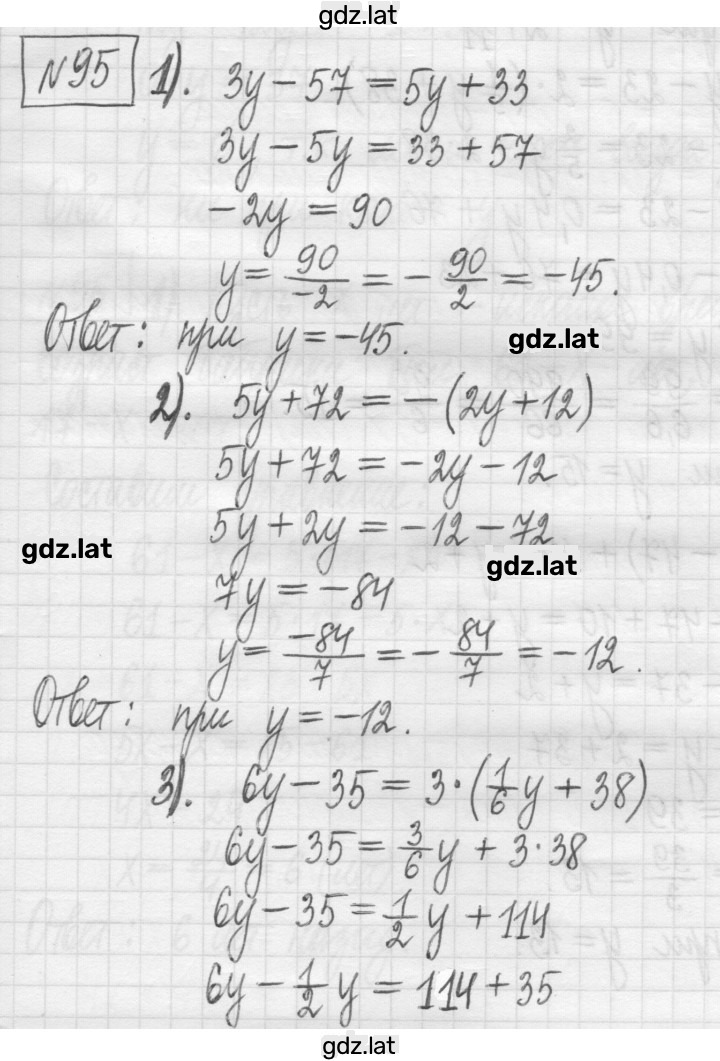 gdz.lat
№95 1). 3y − 57 = 5y + 33
3y − 5y = 33 + 57
−2y = 90
y = 90/−2 = − 90/2 = −45.
Ответ: при y = −45.
gdz.lat
2). 5y + 72 = −(2y + 12)
5y + 72 = −2y − 12
5y + 2y = −12 − 72
gdz.lat
gdz.lat
7y = −84
y = −84/7 = − 84/7 = −12.
Ответ: при y = −12.
3). 6y − 35 = 3·(1/6 y + 38)
6y − 35 = 3/6 y + 3·38
6y − 35 = 1/2 y + 114
6y − 1/2 y = 114 + 35
gdz.lat